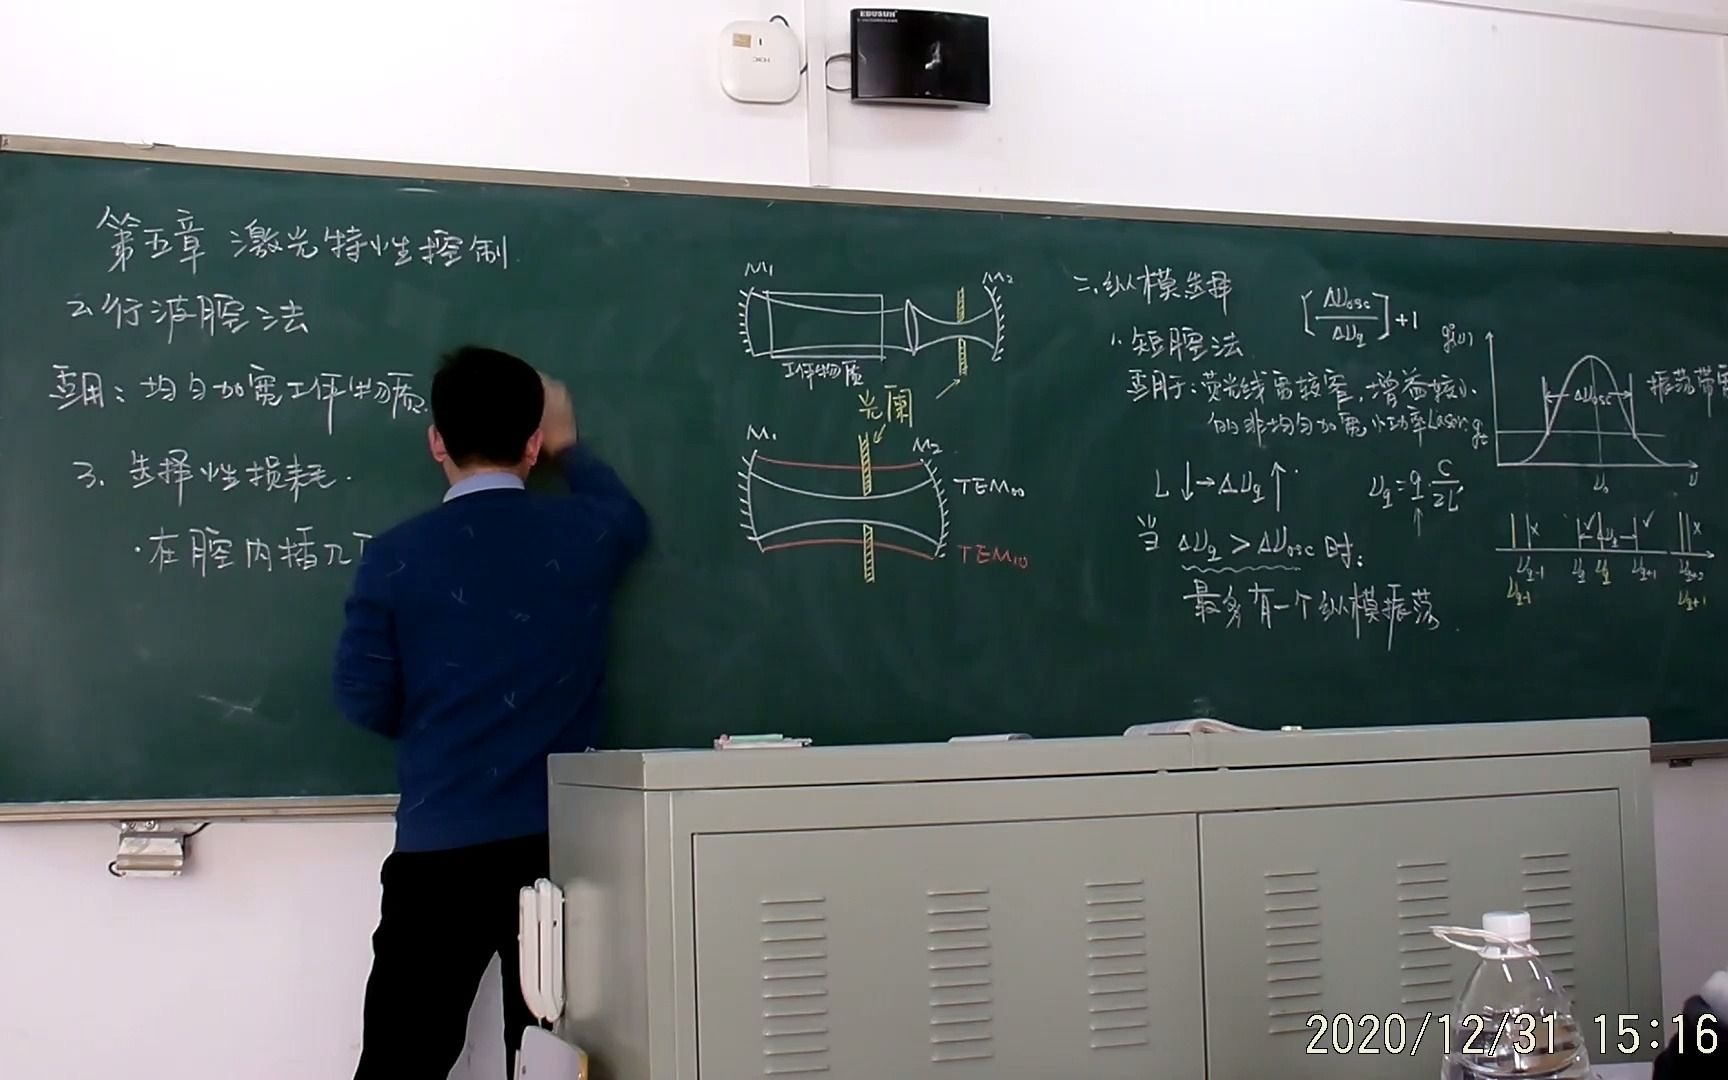 EDUSUN
H3C
第五章 激光特性控制
2.行波腔法
适用：均匀加宽工作物质.
3. 选择性损耗.
·在腔内插入
M₁
M₂
工作物质
光阑
M₁
M₂
TEM₀₀
TEM₁₀
二.纵模选择
[Δν_osc/Δν_q]+1
1.短腔法
适用于：荧光线宽较窄，增益较小
的非均匀加宽小功率Laser.
L↓→Δν_q↑
ν_q=q·C/2L'
当 Δν_q>Δν_osc 时：
最多有一个纵模振荡.
g(ν)
Δν_osc
振荡带宽
g_t
ν₀
ν
× ✓ Δν_q ✓ ×
ν_q-1 ν_q ν_q ν_q+1 ν_q+2
ν_q-1 ν_q+1
2020/12/31 15:16